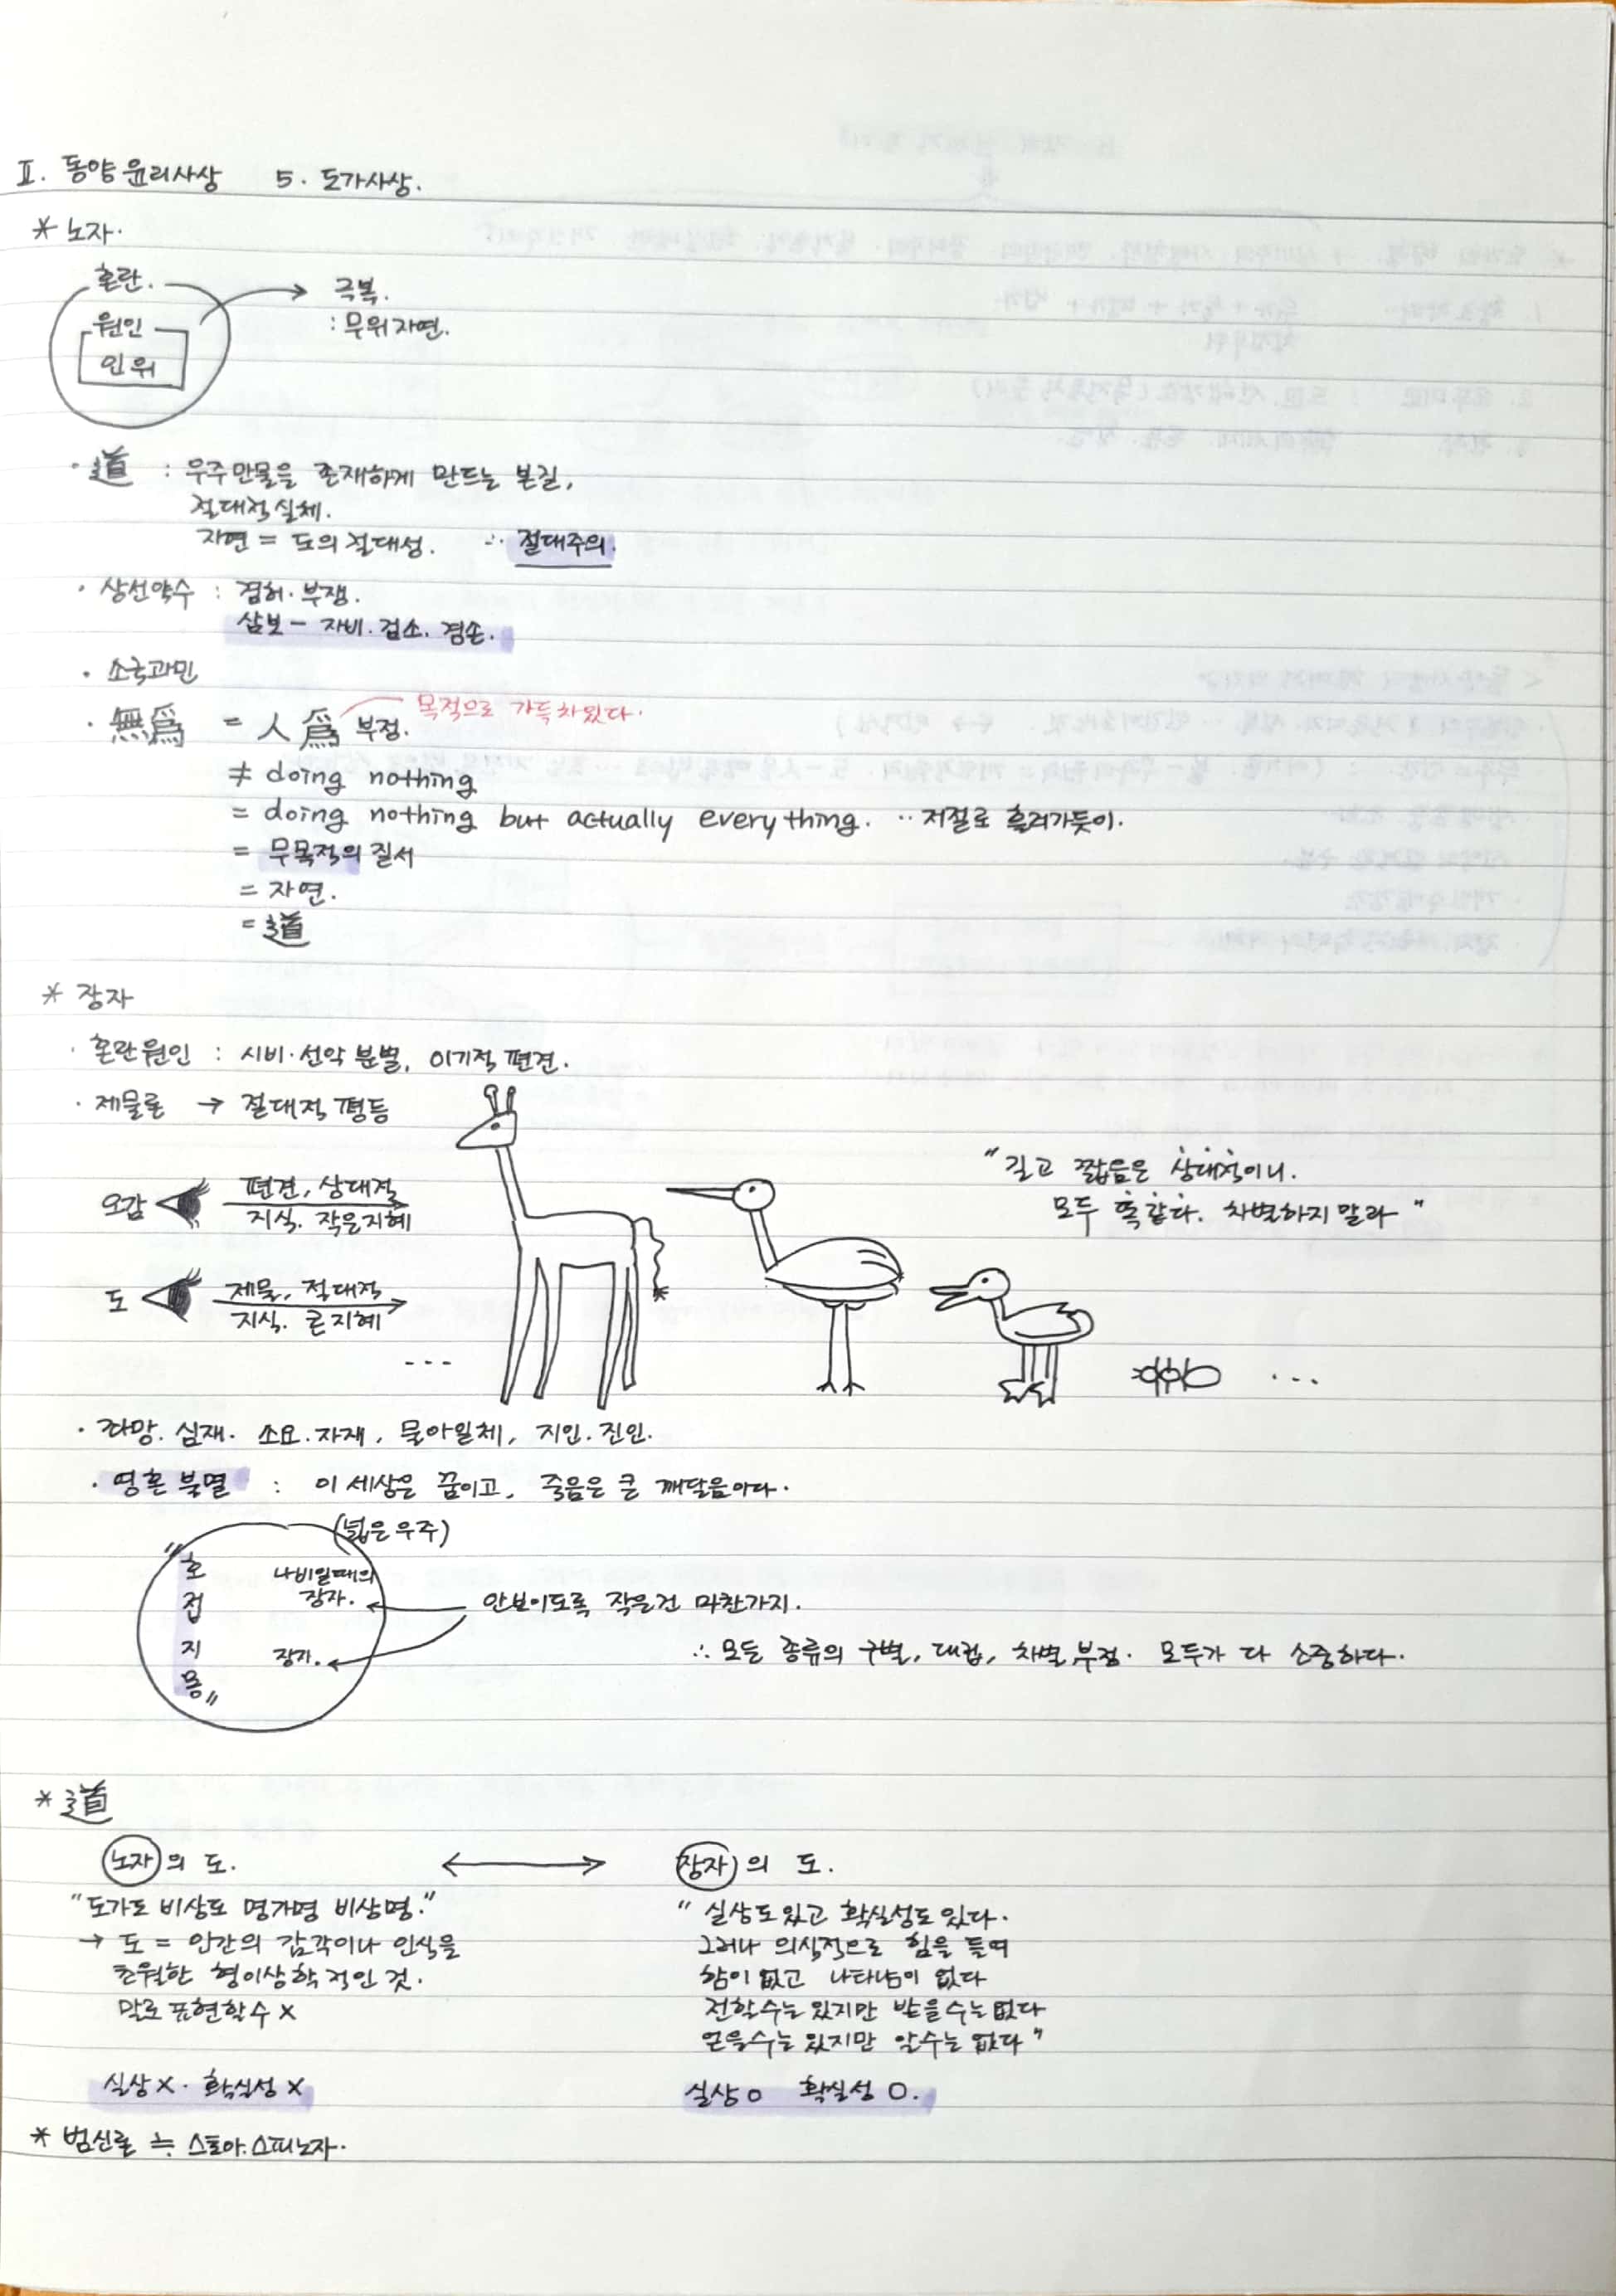 II. 동양 윤리사상 5. 도가사상.
* 노자.
혼란.
원인
인위
극복.
: 무위자연.
· 道 : 우주만물을 존재하게 만드는 본질,
절대적실체.
자연 = 도의 절대성. ∴ 절대주의.
· 상선약수 : 겸허·부쟁.
삼보 - 자비. 검소. 겸손.
· 소국과민
· 無爲 = 人爲 부정.
목적으로 가득차있다.
≠ doing nothing
= doing nothing but actually everything. ·· 저절로 흘러가듯이.
= 무목적의 질서
= 자연.
= 道
* 장자
· 혼란원인 : 시비·선악 분별, 이기적 편견.
· 제물론 → 절대적 평등
오감
편견, 상대적
지식. 작은지혜
"길고 짧음은 상대적이니.
모두 똑같다. 차별하지 말라"
도
제물, 절대적
지식. 큰지혜
... ...
· 좌망. 심재. 소요. 자재, 물아일체, 지인. 진인.
· 영혼 불멸 : 이 세상은 꿈이고, 죽음은 큰 깨달음이다.
(넓은우주)
"호접지몽"
나비일때의
장자.
장자.
안보이도록 작은건 마찬가지.
∴ 모든 종류의 구별, 대립, 차별 부정. 모두가 다 소중하다.
* 道
노자의 도. ↔ 장자의 도.
"도가도 비상도 명가명 비상명."
→ 도 = 인간의 감각이나 인식을
초월한 형이상학적인 것.
말로 표현할수 X
실상 X. 확실성 X
"실상도있고 확실성도 있다.
그러나 의식적으로 힘을 들여
함이 없고 나타남이 없다
전할수는 있지만 받을수는없다
얻을수는 있지만 알수는 없다"
실상 O 확실성 O.
* 범신론 ≒ 스토아. 스피노자.